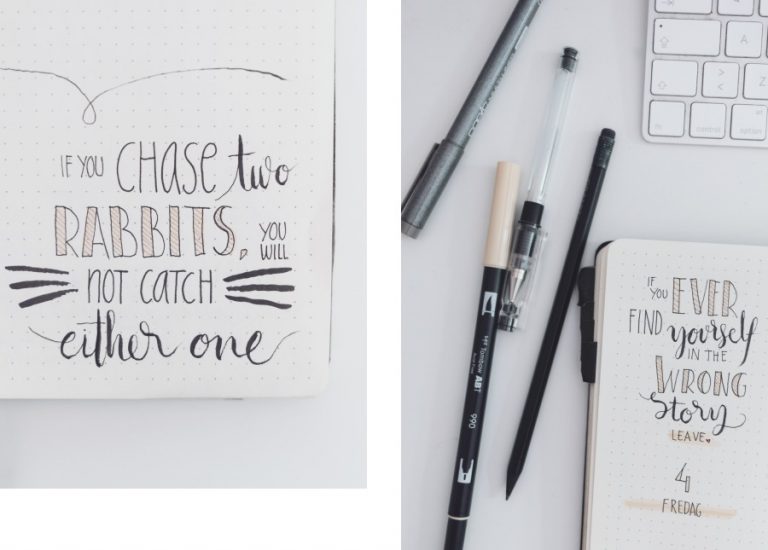 IF YOU CHASE two
RABBITS, YOU WILL
NOT CATCH
either one
A
Z
control
option
TOMBOW ABT
990
IF YOU EVER
FIND yourself
IN THE
WRONG
Story
LEAVE
4
FREDAG